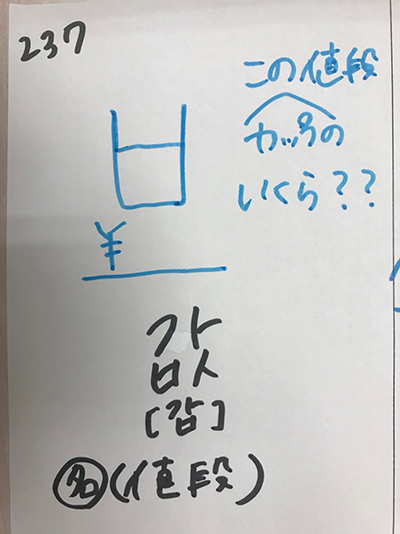 237
この値段
カップの
いくら??
¥
값
[갑]
名(値段)